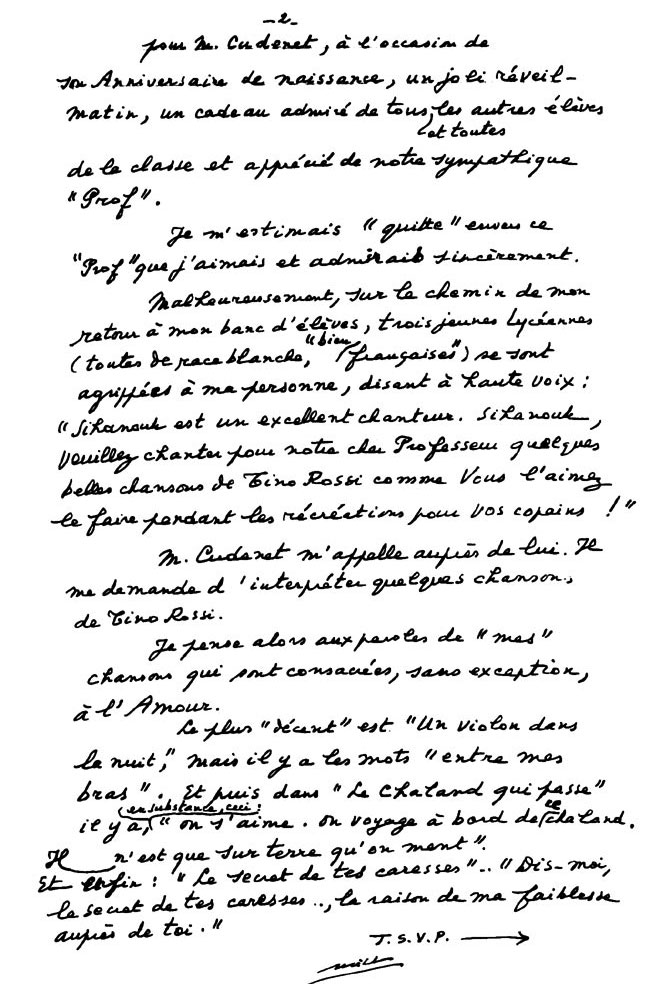 -2-
pour M. Cudenet, à l'occasion de
son Anniversaire de naissance, un joli réveil-
matin, un cadeau admiré de tous, les autres élèves
et toutes
de la classe et apprécié de notre sympathique
"Prof".
Je m'estimais "quitte" envers ce
"Prof" que j'aimais et admirais sincèrement.
Malheureusement, sur le chemin de mon
retour à mon banc d'élèves, trois jeunes Lycéennes
(toutes de race blanche, "bien françaises") se sont
agrippées à ma personne, disant à haute voix :
"Sihanouk est un excellent chanteur. Sihanouk,
veuillez chanter pour notre cher Professeur quelques
belles chansons de Tino Rossi comme Vous l'aimez
le faire pendant les récréations pour vos copains !"
M. Cudenet m'appelle auprès de lui. Il
me demande d'interpréter quelques chansons
de Tino Rossi.
Je pense alors aux paroles de "mes"
chansons qui sont consacrées, sans exception,
à l'Amour.
Le plus "décent" est "Un violon dans
la nuit", mais il y a les mots "entre mes
bras". Et puis dans "Le Chaland qui passe"
il y a, (en substance, ceci : "on s'aime. on voyage à bord de ce chaland.
Il n'est que sur terre qu'on ment".
Et enfin : "Le secret de tes caresses".. "Dis-moi,
le secret de tes caresses .., la raison de ma faiblesse
auprès de toi."
T.S.V.P. →